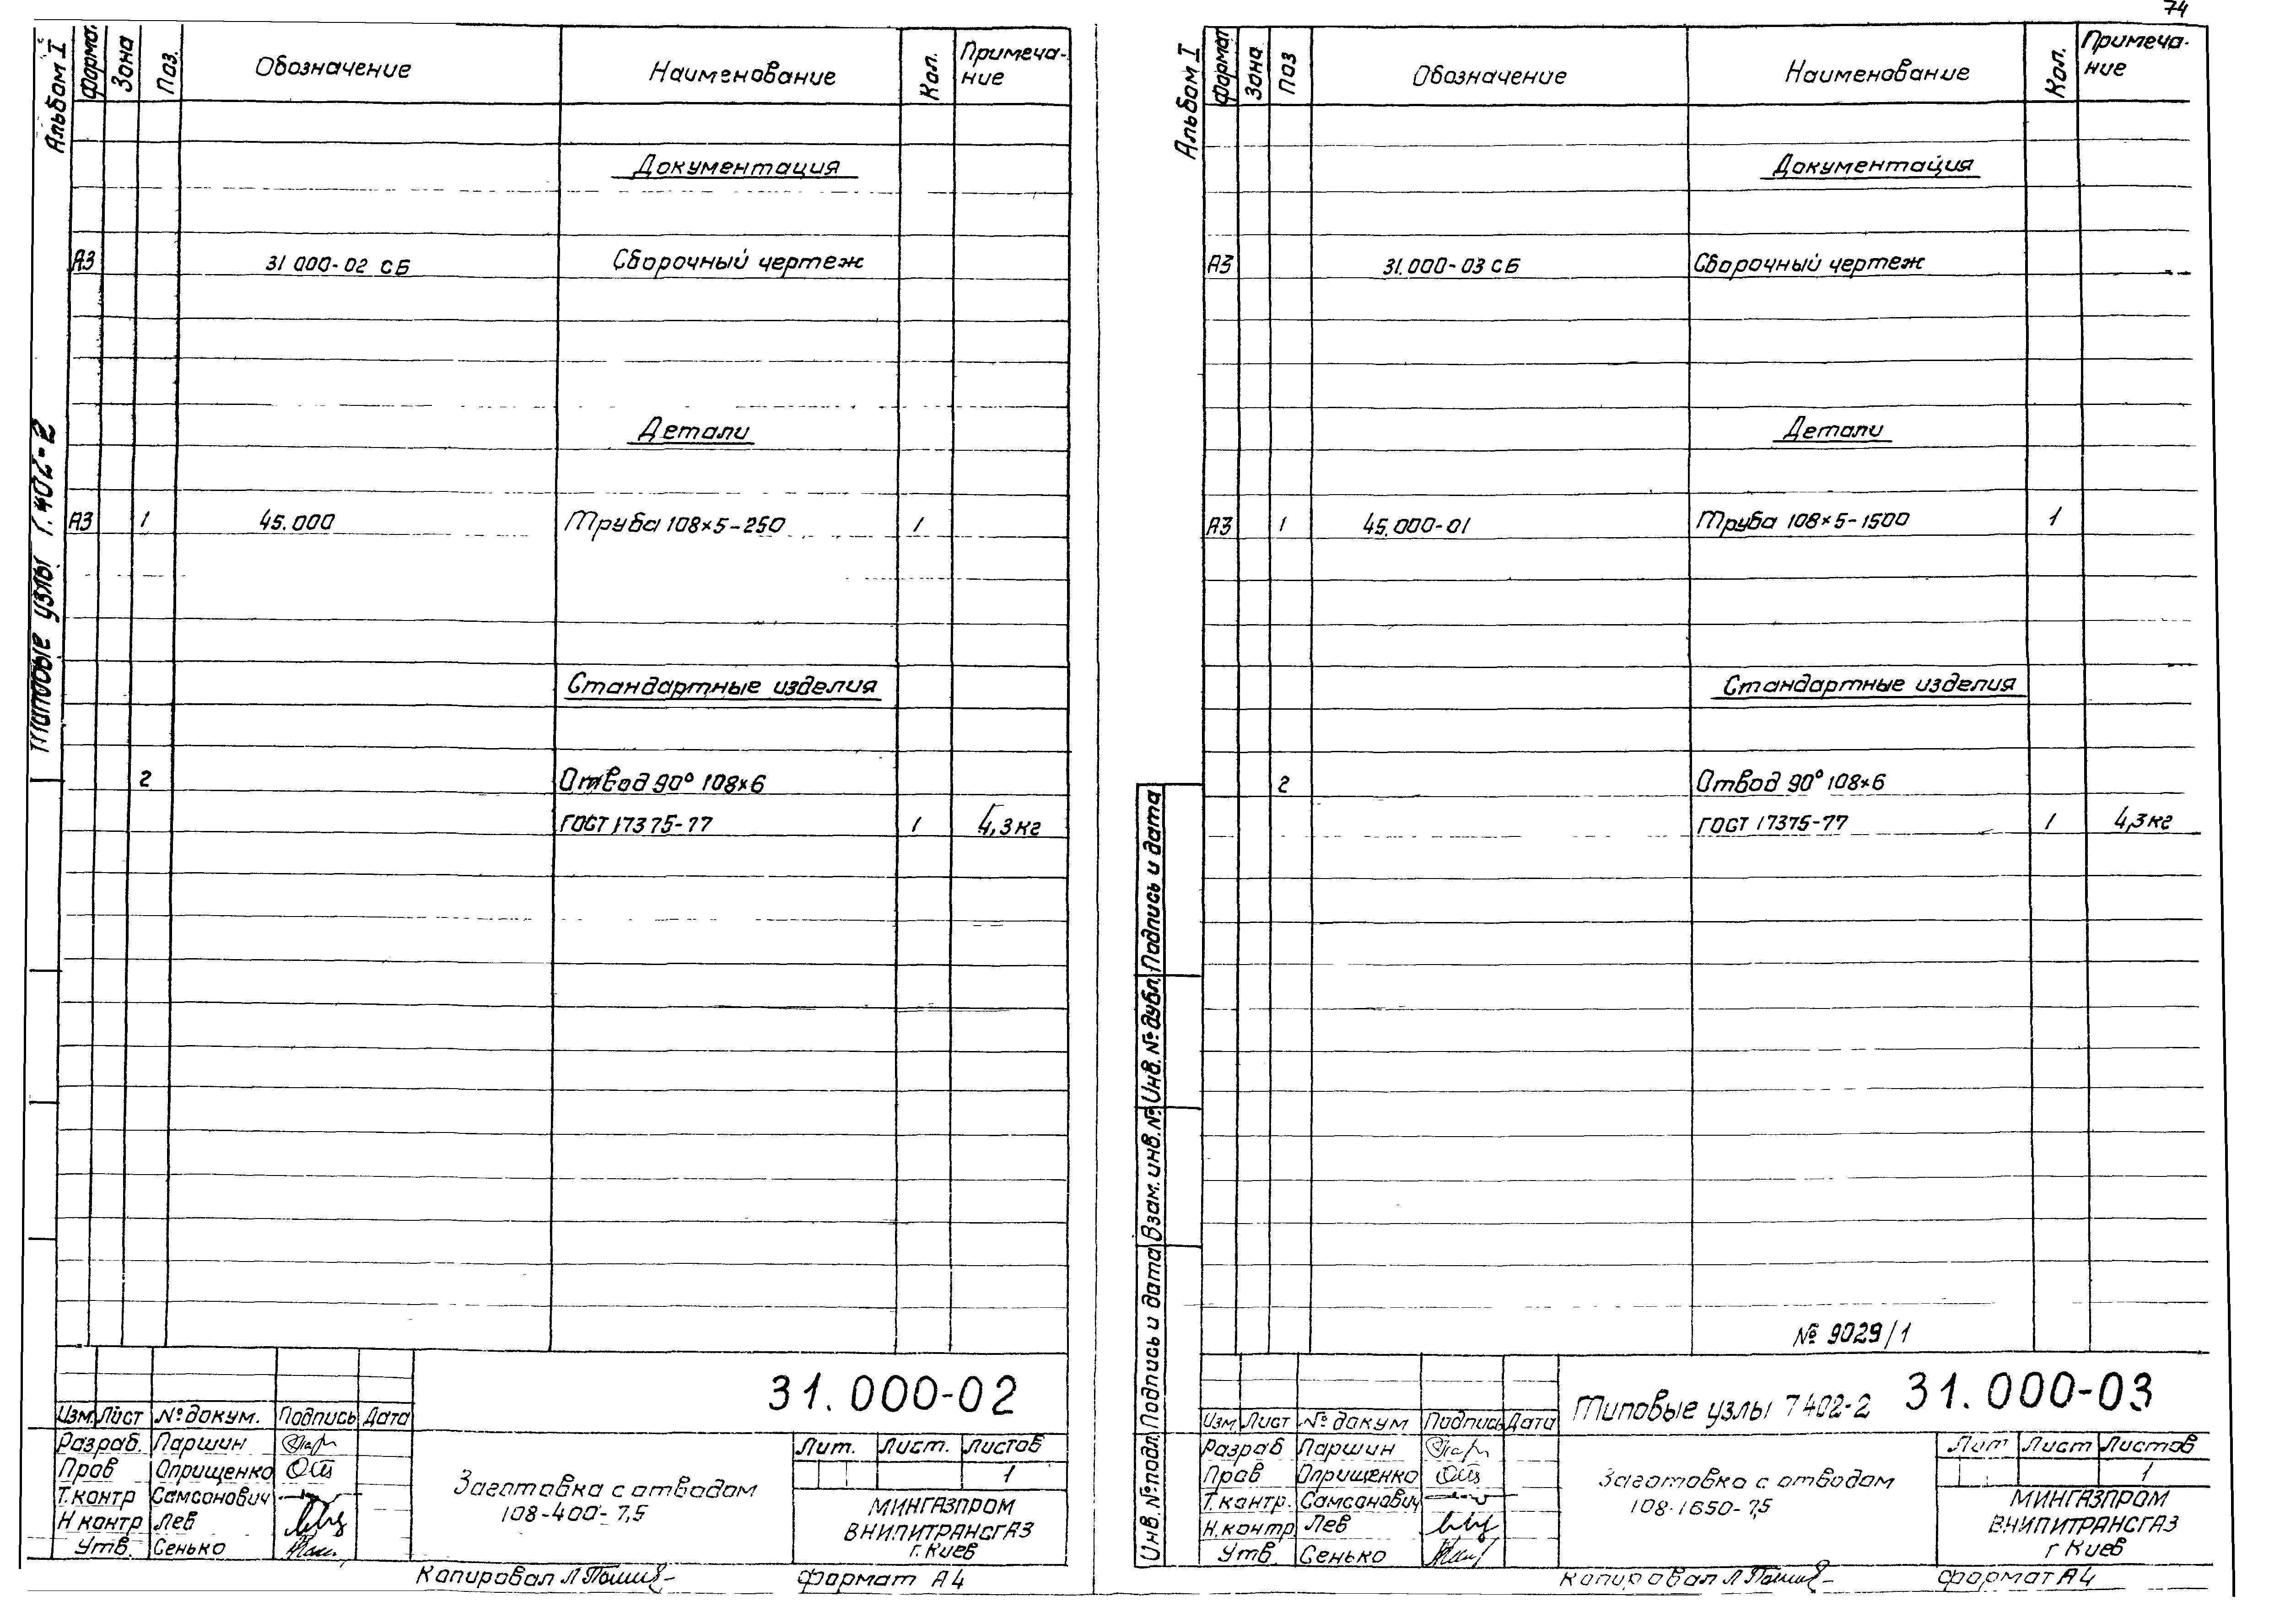 74
Альбом I
Типовые узлы 7.402-2
Формат Зона Поз. Обозначение Наименование Кол. Примеча-
ние
Документация
А3 31 000-02 СБ Сборочный чертеж
Детали
А3 1 45.000 Труба 108×5-250 1
Стандартные изделия
2 Отвод 90° 108×6
ГОСТ 17375-77 1 4,3 кг
31.000-02
Изм. Лист № докум. Подпись Дата
Разраб. Паршин
Пров Оприщенко
Т.контр Самсонович
Н контр Лев
Утв. Сенько
Заготовка с отводом
108-400-7,5
Лит. Лист. Листов
1
МИНГАЗПРОМ
ВНИПИТРАНСГАЗ
г. Киев
Копировал Формат А4
Альбом I
Формат Зона Поз Обозначение Наименование Кол. Примеча-
ние
Документация
А3 31.000-03 СБ Сборочный чертеж
Детали
А3 1 45.000-01 Труба 108×5-1500 1
Стандартные изделия
2 Отвод 90° 108×6
ГОСТ 17375-77 1 4,3 кг
№ 9029/1
Инв. № подл. Подпись и дата Взам. инв. № Инв. № дубл. Подпись и дата
Типовые узлы 7402-2 31.000-03
Изм Лист № докум Подпись Дата
Разраб Паршин
Пров Оприщенко
Т.контр. Самсонович
Н.контр Лев
Утв. Сенько
Заготовка с отводом
108-1650-7,5
Лит Лист Листов
1
МИНГАЗПРОМ
ВНИПИТРАНСГАЗ
г Киев
Копировал Формат А4